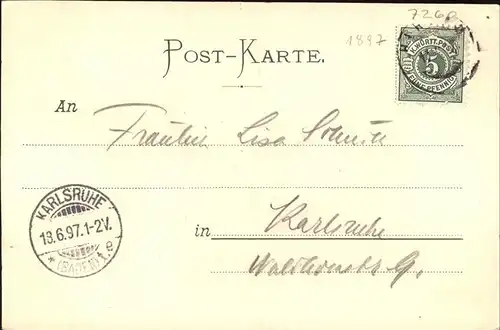 7260
1897
POST-KARTE.
K. WÜRTT. POST
5
FÜNF PFENNIG
An
Fräulein Lisa Schmitt
KARLSRUHE
13.6.97.1-2V.
* (BADEN) 1.e
in Karlsruhe